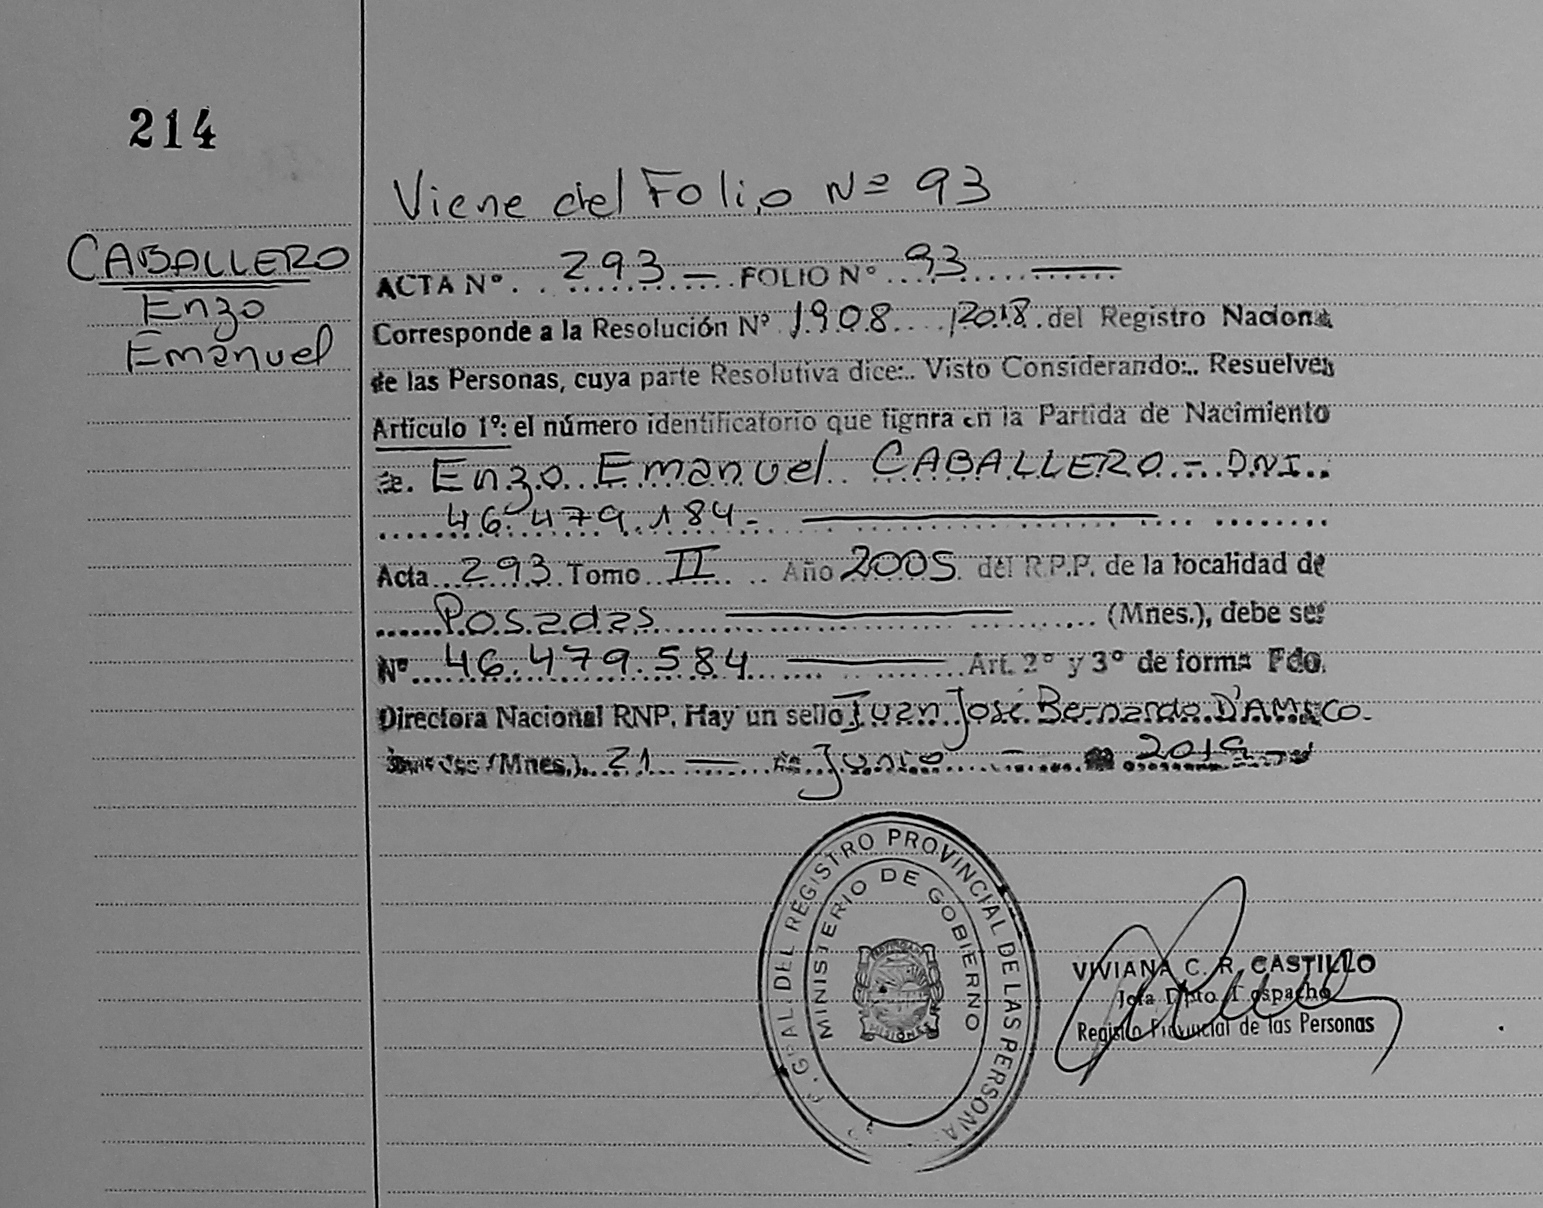 214
Viene del Folio Nº 93
CABALLERO
Enzo
Emanuel
ACTA Nº. 293 — FOLIO Nº 93
Corresponde a la Resolución Nº 1908 /2018 del Registro Naciona
de las Personas, cuya parte Resolutiva dice:.. Visto Considerando:.. Resuelve:
Artículo 1º: el número identificatorio que fignra en la Partida de Nacimiento
de Enzo Emanuel CABALLERO - DNI..
46.479.184-
Acta 293 Tomo II Año 2005 del R.P.P. de la localidad de
Posadas (Mnes.), debe ser
Nº 46.479.584 Art. 2º y 3º de forma Fdo.
Directora Nacional RNP. Hay un sello Juan José Bernardo D'AMICO.
(Mnes.). 21 — de Junio - 2019
GRAL. DEL REGISTRO PROVINCIAL DE LAS PERSONA
MINISTERIO DE GOBIERNO
MISIONES
VIVIANA C. R. CASTILLO
Jefa Dpto. Despacho
Registro Provincial de las Personas